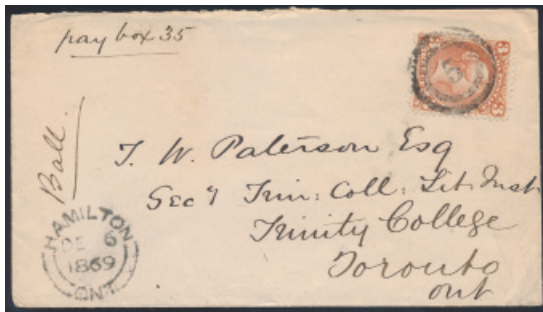 pay box 35
3 3
5
Ball.
T. W. Paterson Esq
Secy Trin: Coll: Lit: Inst
Trinity College
Toronto
Ont
HAMILTON
DE 6
1869
ONT